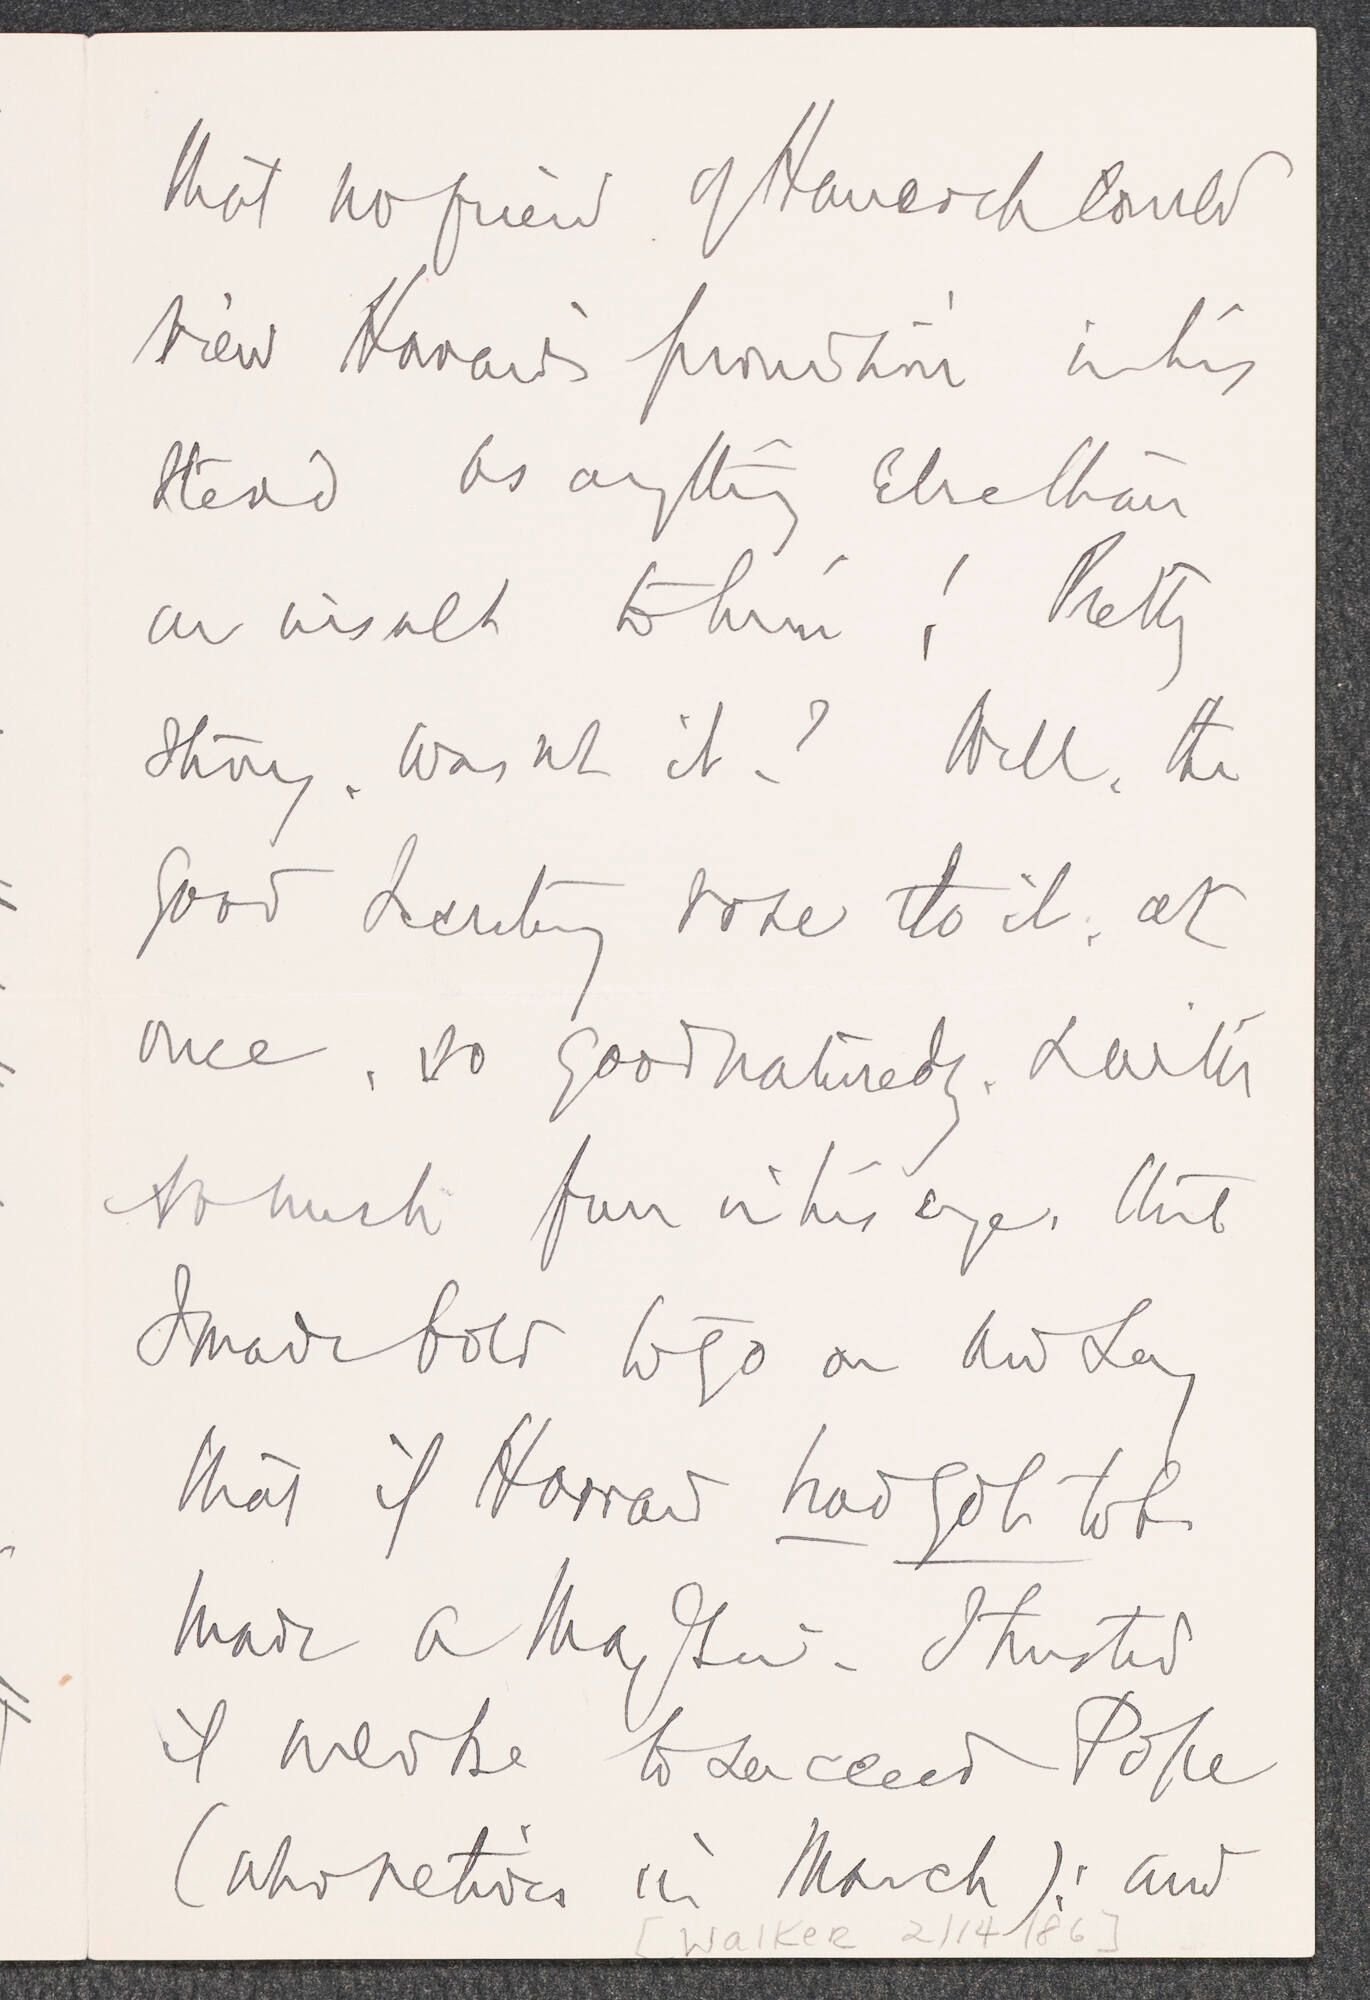 that no friend of Hancock could
view Howard's promotion in his
stead as anything Else than
an insult to him! Pretty
story, wasn't it.? Well, the
good Secretary rose to it, at
once, so goodnaturedly, & with
so much fun in his eye, that
I made bold to go on and say
that if Howard had got to be
made a Maj Gen'l - I trusted
it wd be to succeed Pope
(who retires in March); and
[Walker 2/14/86]